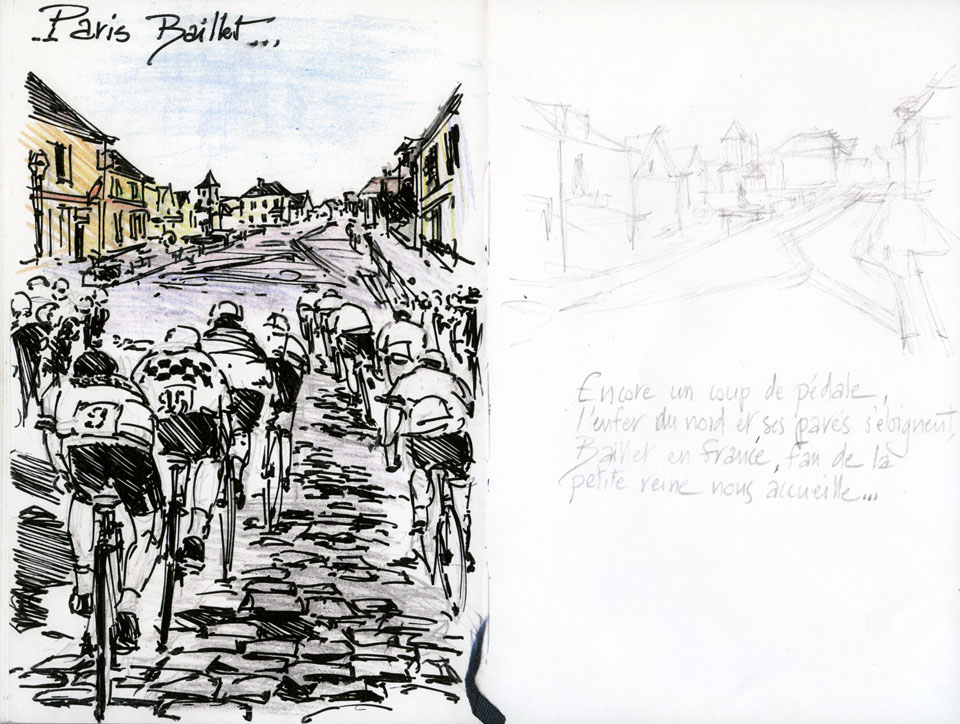 Paris Baillet...
9
Encore un coup de pédale,
l'enfer du nord et ses pavés s'éloignent,
Baillet en france, fan de la
petite reine nous accueille...